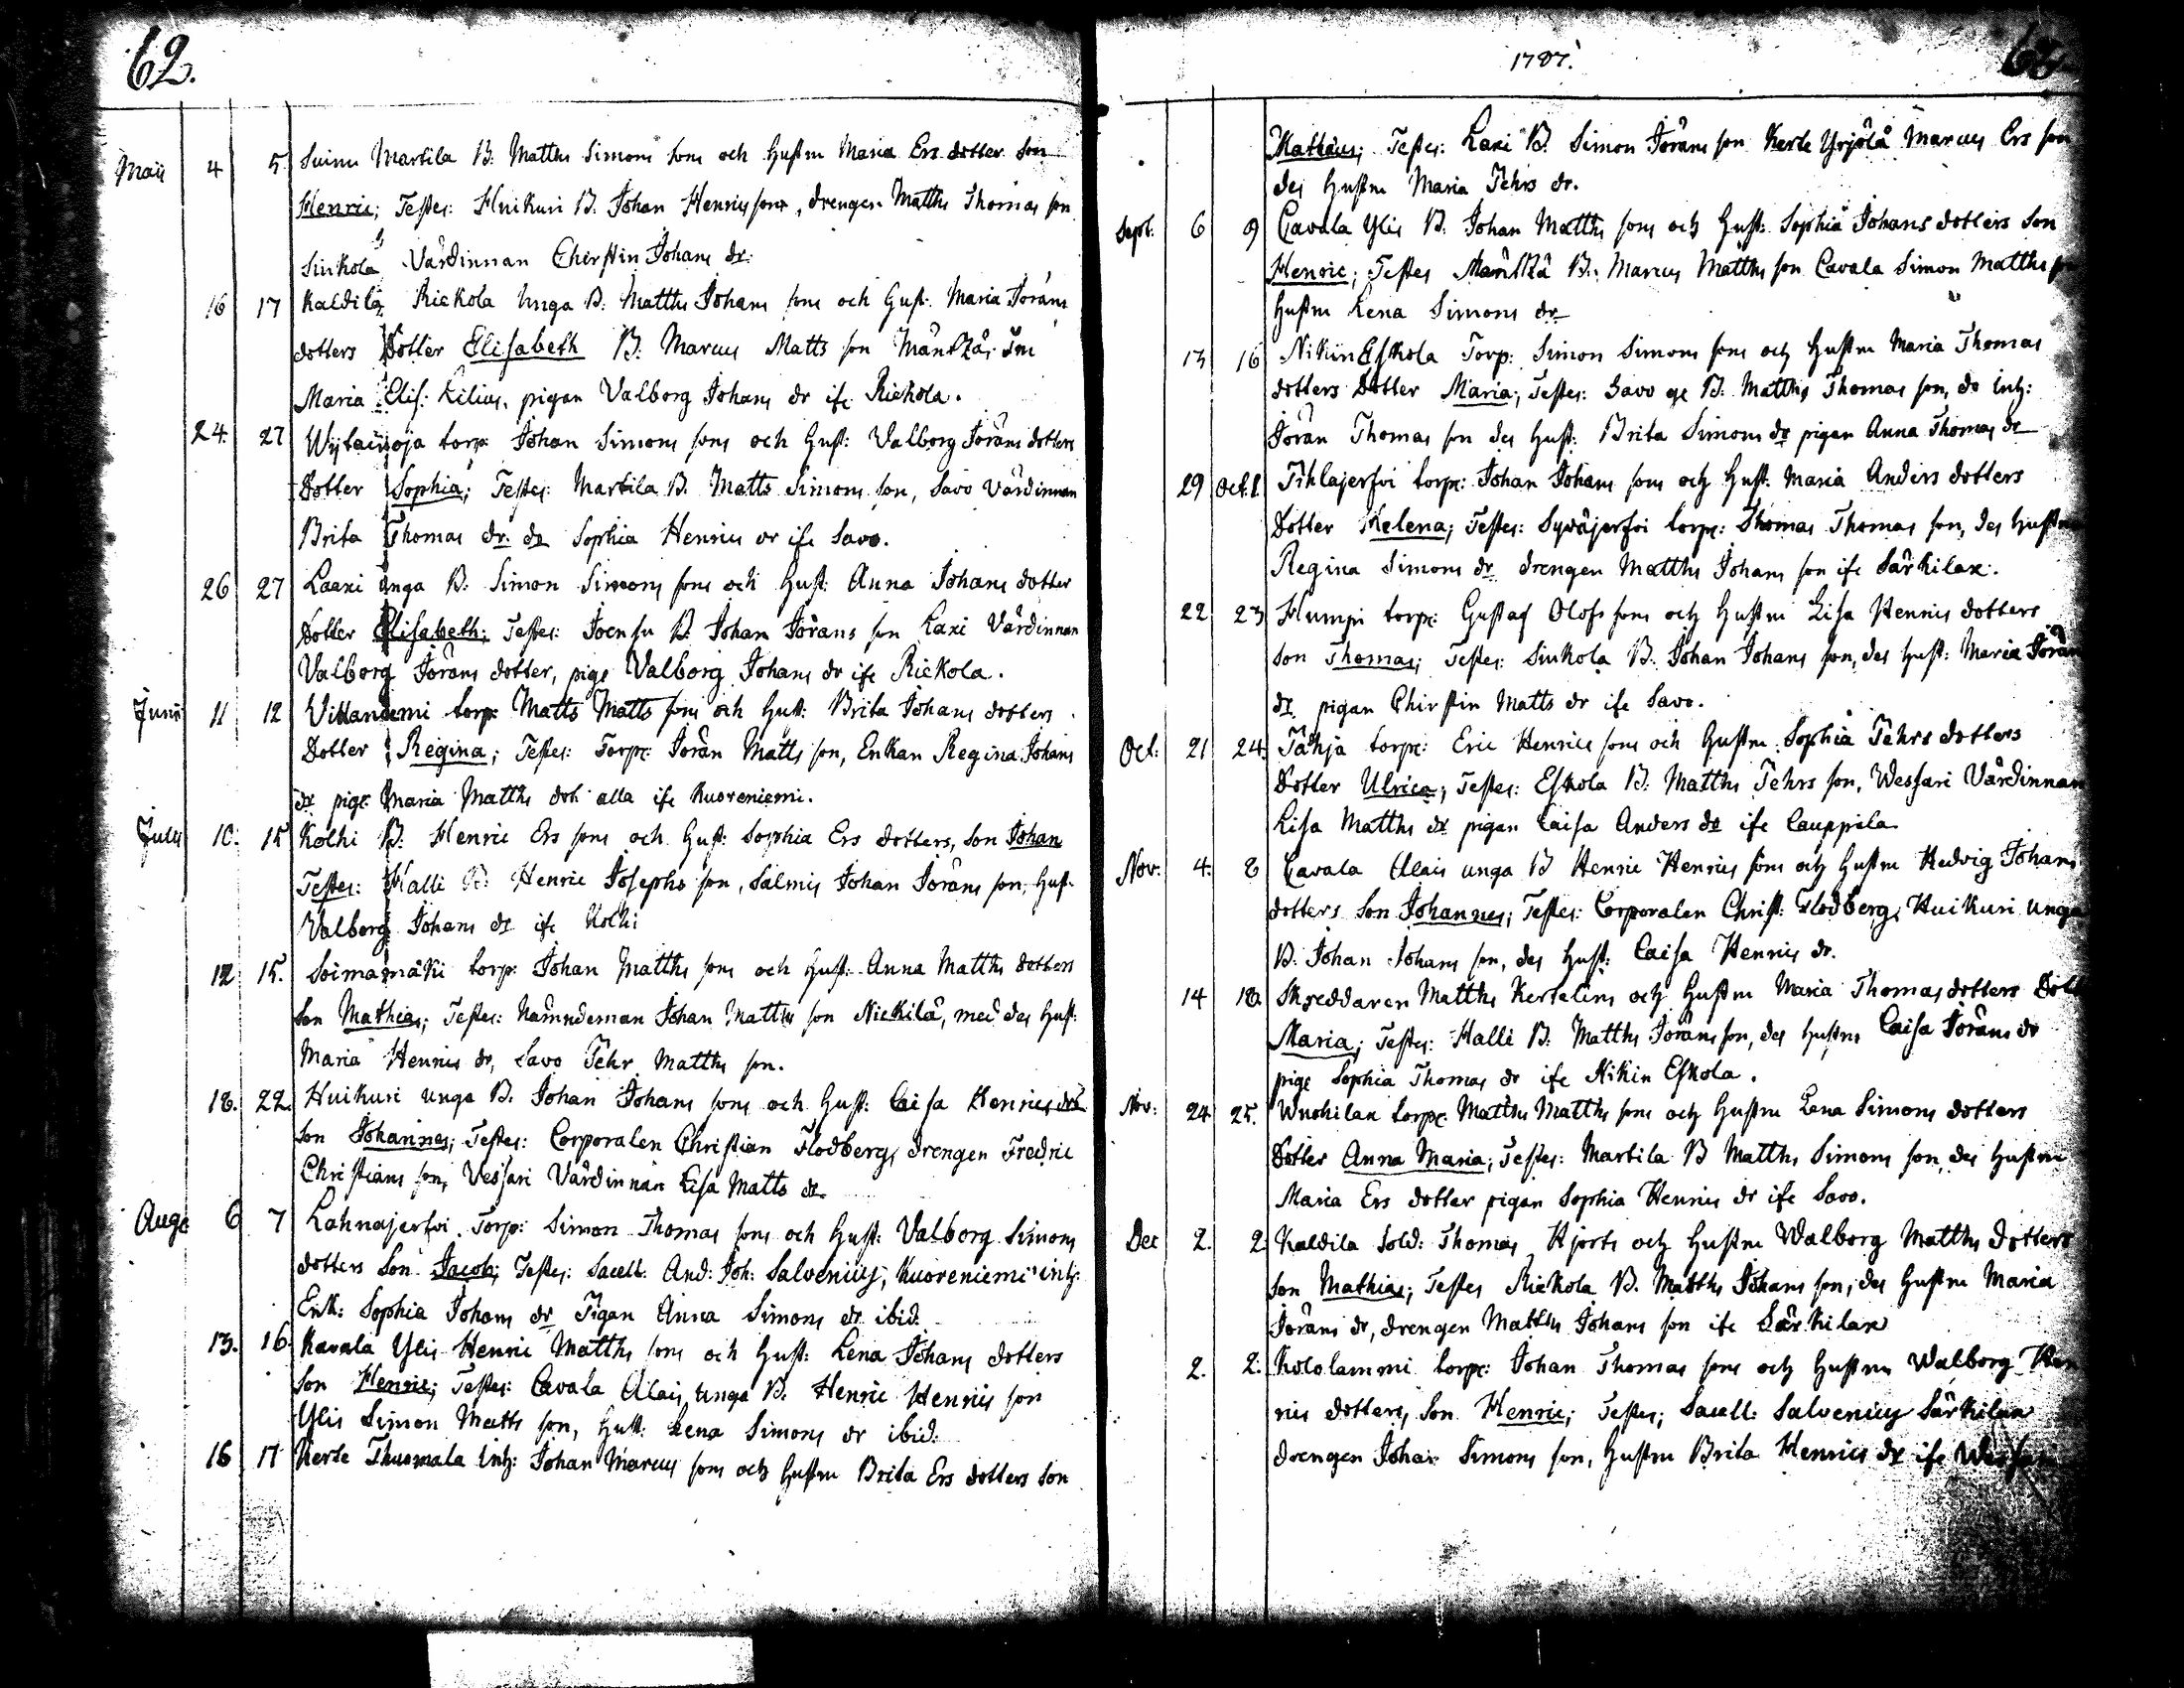 62.
Maii 4 5. Suinu Martila B. Matths Simons sons och Hustru Maria Ers dotter son
Henric; Testes: Huikuri B. Johan Henrics son, drengen Matths Thomas son
Sinkola Värdinnan Chirstin Johans dr.
16 17 Kaldila Rickola Unga B. Matths Johans sons och Hust. Maria Jörans
dotters Dotter Elisabeth B. Marcus Matts son Mänttä,
Maria Elis: Lilius, pigan Valborg Johans dr ife Rickola.
24. 27 torp. Johan Simons sons och Hust: Valborg Jörans dotters
Dotter Sophia; Testes: Martila B. Matts Simons son, Savo Värdinnan
Brita Thomas dr. do Sophia Henrics dr ife Savo.
26 27 Laaxi Unga B. Simon Simons sons och Hust: Anna Johans dotter
Dotter Elisabeth; Testes: Joensu B. Johan Jörans son Laxi Värdinnan
Valborg Jörans dotter, pige Valborg Johans dr ife Rickola.
Junii 11 12 torp: Matts Matts sons och Hust: Brita Johans dotters
Dotter Regina; Testes: Torp: Jöran Matts son, Enkan Regina Johans
dr pige Maria Matths dotr alla ife Kuoreniemi.
Julii 10. 15 Kolhi B. Henric Ers sons och Hust: Sophia Ers dotters, son Johan
Testes: Halli B. Henric Josephs son, Salmis Johan Jörans son, Hust.
Valborg Johans dr ife Kolhi
12 15. Soimamäki torp: Johan Matths sons och Hust: Anna Matths dotters
Son Mathias; Testes: Nämndeman Johan Matths son Nickilä, med des Hust:
Maria Henrics dr, Savo Pehr Matths son.
18. 22. Huikuri unga B. Johan Johans sons och Hust: Caisa Henrics dot
Son Johannes; Testes: Corporalen Christian Flodberg, drengen Fredric
Christians son, Vessari Värdinnan Lisa Matts dr.
Aug: 6 7 Lahnajerfvi Torp: Simon Thomas sons och Hust: Valborg Simons
dotters Son Jacob; Testes: Sacell: And: Joh: Salvenius, Kuoreniemi inh:
Enk: Sophia Johans dr Pigan Anna Simons dr ibid.
13. 16. Kavala Ylis Henric Matths sons och Hust: Lena Johans dotters
Son Henric; Testes: Cavala Alais unga B. Henric Henrics son
Ylis Simon Matts son, Hust: Lena Simons dr ibid.
16 17 Kerte Thuomala inh: Johan Marcus sons och Hustru Brita Ers dotters son
1787.
Mathäus; Testes: Laxi B. Simon Jörans son Kerte Yrjölä Marcus Ers son
des Hustru Maria Pehrs dr.
Sept: 6 9 Cavala Ylis B. Johan Matths sons och Hust: Sophia Johans dotters Son
Henric; Testes Mänttä B. Marcus Matths son Cavala Simon Matths
Hustru Lena Simons dr
13 16 Nikin Eskola Torp: Simon Simons sons och Hustru Maria Thomas
dotters Dotter Maria; Testes: Savo B. Matths Thomas son, do inh:
Jöran Thomas son des Hust: Brita Simons dr pigan Anna Thomas dr
29 Oct. 1. Pihlajerfvi torp: Johan Johans sons och Hust: Maria Anders dotters
Dotter Helena; Testes: Sywäjerfvi torp: Thomas Thomas son, des Hustru
Regina Simons dr drengen Matths Johans son ife Särkilax.
22 23 Humpi torp: Gustaf Olofs sons och Hustru Lisa Henrics dotters
Son Thomas; Testes: Sinkola B. Johan Johans son, des Hust: Maria Jörans
dr pigan Chirstin Matts dr ife Savo.
Oct: 21 24. torp: Eric Henrics sons och Hustru Sophia Pehrs dotters
Dotter Ulrica; Testes: Eskola B. Matths Pehrs son, Wessari Värdinnan
Lisa Matths dr pigan Caisa Anders dr ife Cauppila
Nov: 4. 8 Cavala Alais unga B Henric Henrics sons och Hustru Hedvig Johans
dotters Son Johannes; Testes: Corporalen Christ: Flodberg, Huikuri unga
B. Johan Johans son, des Hust: Caisa Henrics dr.
14 18. Skreddaren Matths Kertelins och Hustru Maria Thomas dotters Dott
Maria; Testes: Halli B. Matths Jörans son, des Hustru Caisa Jörans dr
pige Sophia Thomas dr ife Nikin Eskola.
Nov: 24 25. torp: Matths Matths sons och Hustru Lena Simons dotters
Dotter Anna Maria; Testes: Martila B Matths Simons son, des Hustru
Maria Ers dotter pigan Sophia Henrics dr ife Savo.
Dec 2. 2. Kaldila Sold: Thomas Hjorts och Hustru Walborg Matths Dotters
Son Mathias; Testes Rickola B. Matths Johans son, des Hustru Maria
Jörans dr, drengen Matths Johans son ife Särkilax
2. 2. Kololammi torp: Johan Thomas sons och Hustru Walborg Hen
rics dotters, Son Henric; Testes; Sacell: Salvenius Särkilax
drengen Johan Simons son, Hustru Brita Henrics dr ife Wessari